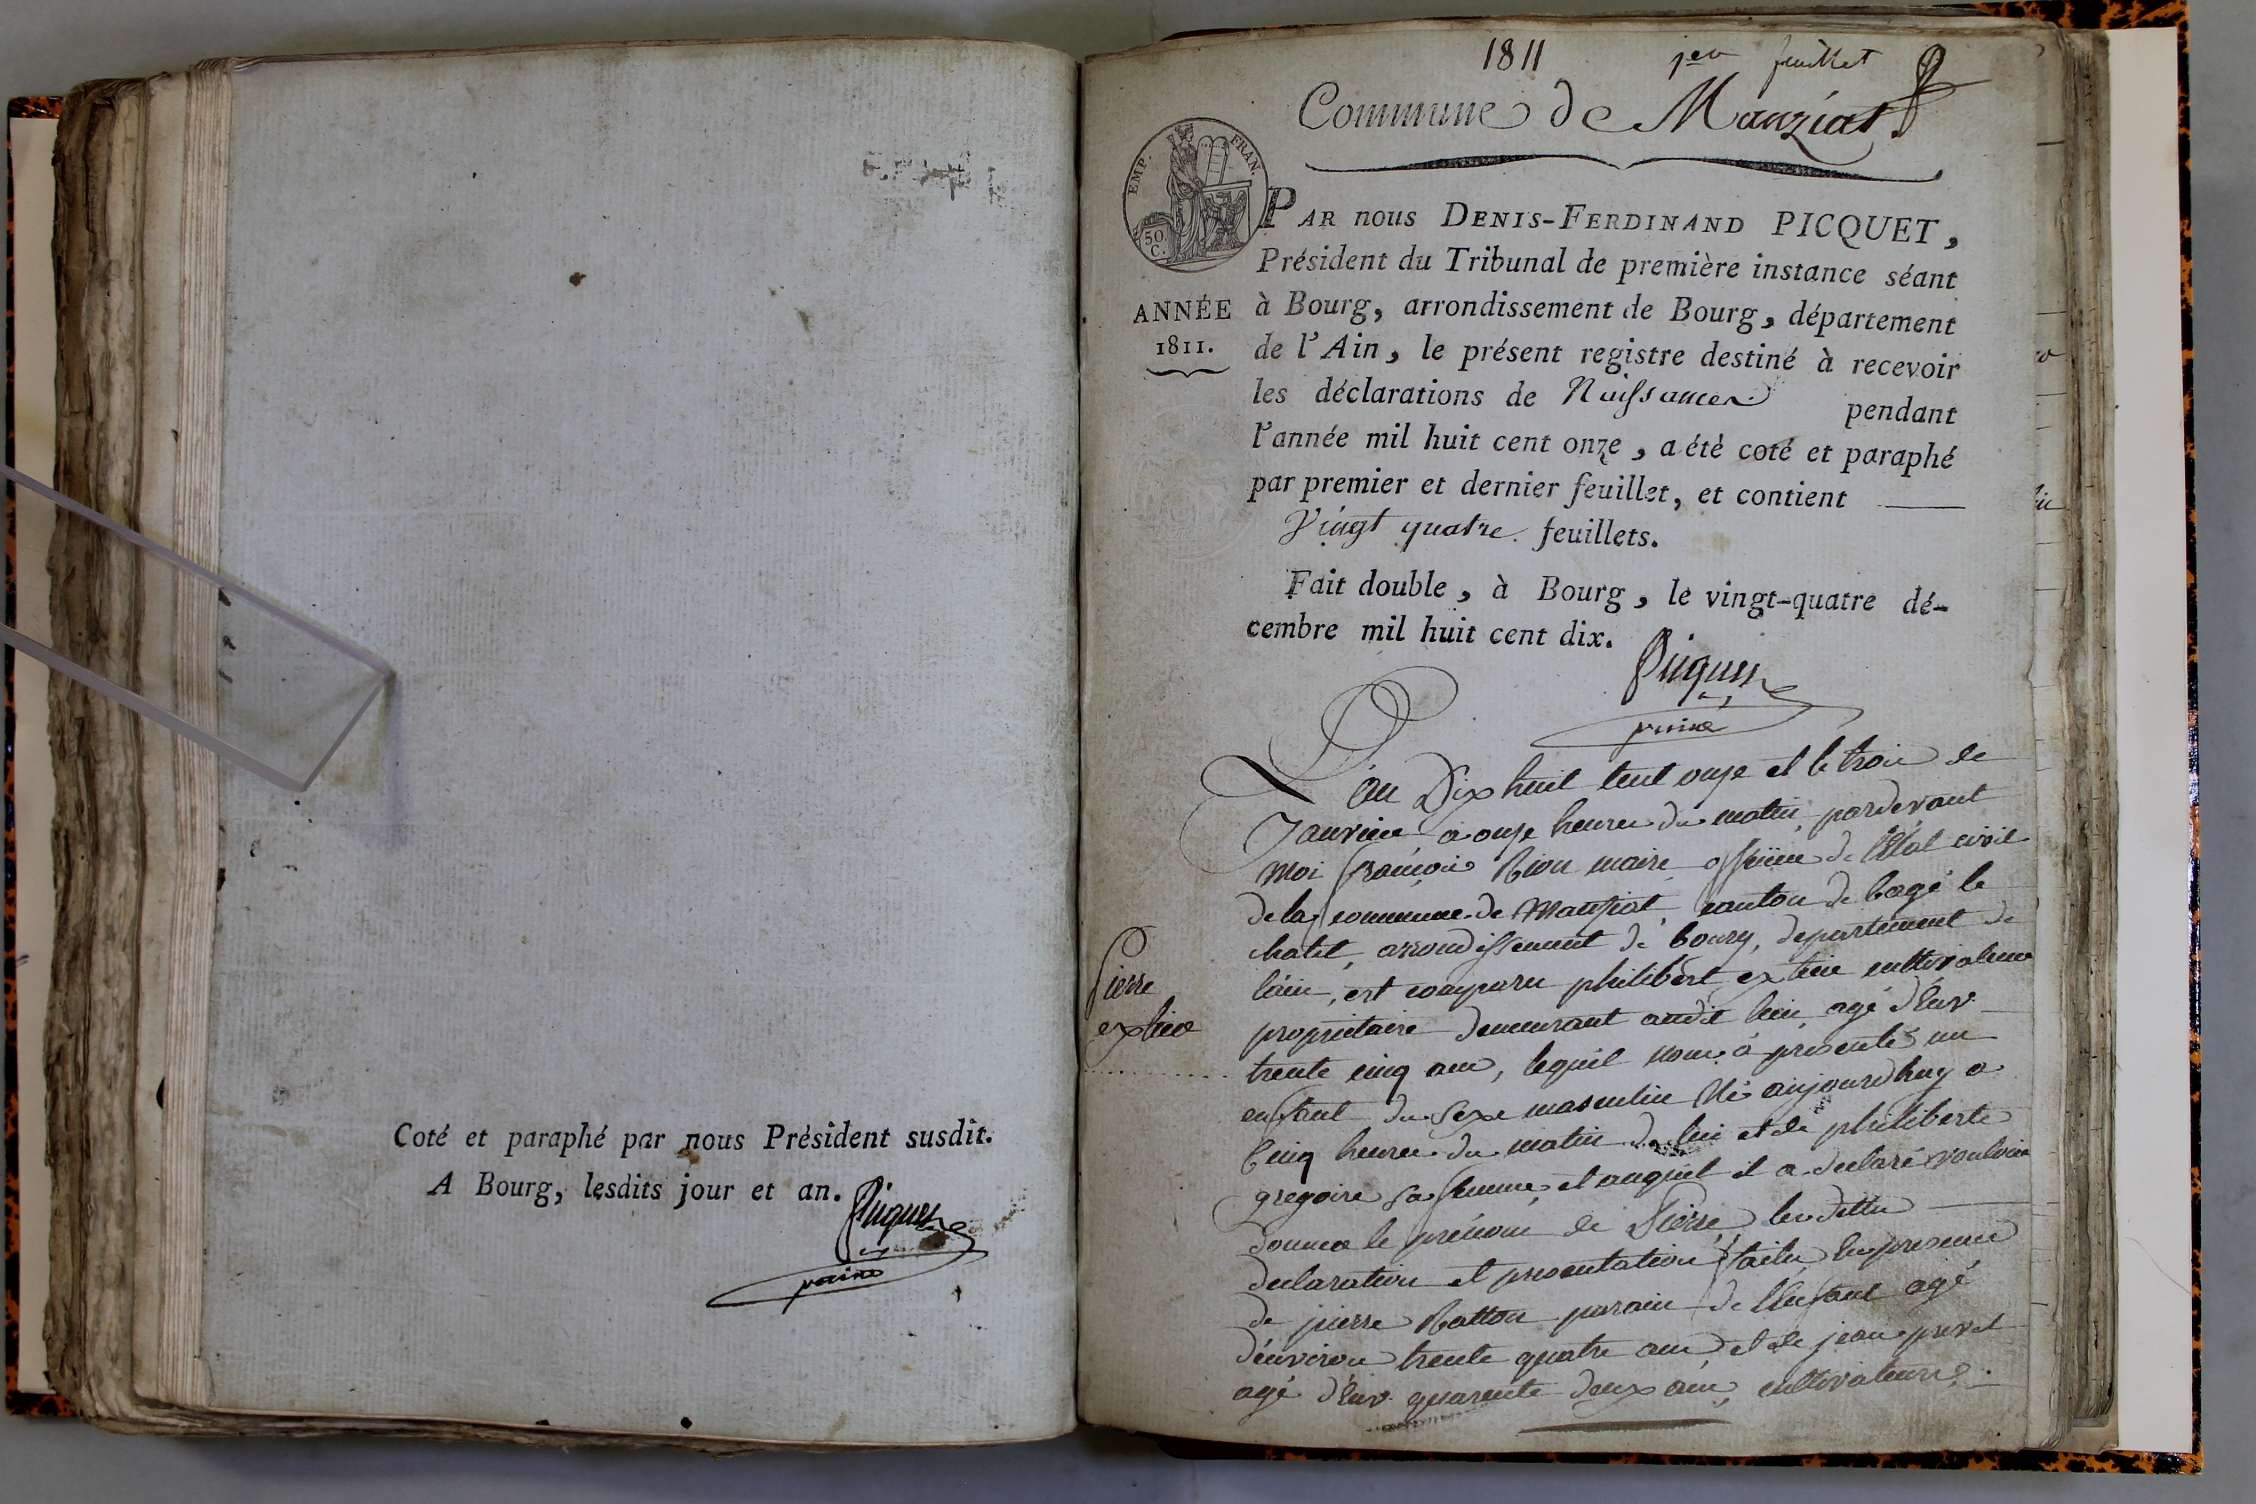 Coté et paraphé par nous Président susdit.
A Bourg, lesdits jour et an.
Picquet
1811 1er feuillet
Commune de Manziat
EMP. FRAN.
50. C.
ANNÉE
1811.
PAR nous DENIS-FERDINAND PICQUET,
Président du Tribunal de première instance séant
à Bourg, arrondissement de Bourg, département
de l'Ain, le présent registre destiné à recevoir
les déclarations de Naissances pendant
l'année mil huit cent onze, a été coté et paraphé
par premier et dernier feuillet, et contient
Vingt quatre feuillets.
Fait double, à Bourg, le vingt-quatre dé-
cembre mil huit cent dix.
Picquet
Pierre
exlive
L'an Dix huit cent onze et le trois de
Janvier a onze heures du matin, pardevant
moi françois Rion maire officier de l'Etat civil
de la commune de Manziat, canton de bagé le
chatel, arrondissement de bourg, departement de
lain, est comparu philibert exlive cultivateur
proprietaire demeurant audit lieu, agé d'Env
trente cinq ans, lequel nous à presenté un
enfant du Sexe masculin Né aujourdhuy a
Cinq heures du matin de lui et de philiberte
gregoire sa femme, et auquel il a declaré vouloir
donner le prénom de Pierre, lesdittes
declaration et presentation faites En presence
de pierre Ratton parain de l'Enfant agé
d'environ trente quatre ans, et de jean prevel
agé d'Env. quarente deux ans, cultivateurs.